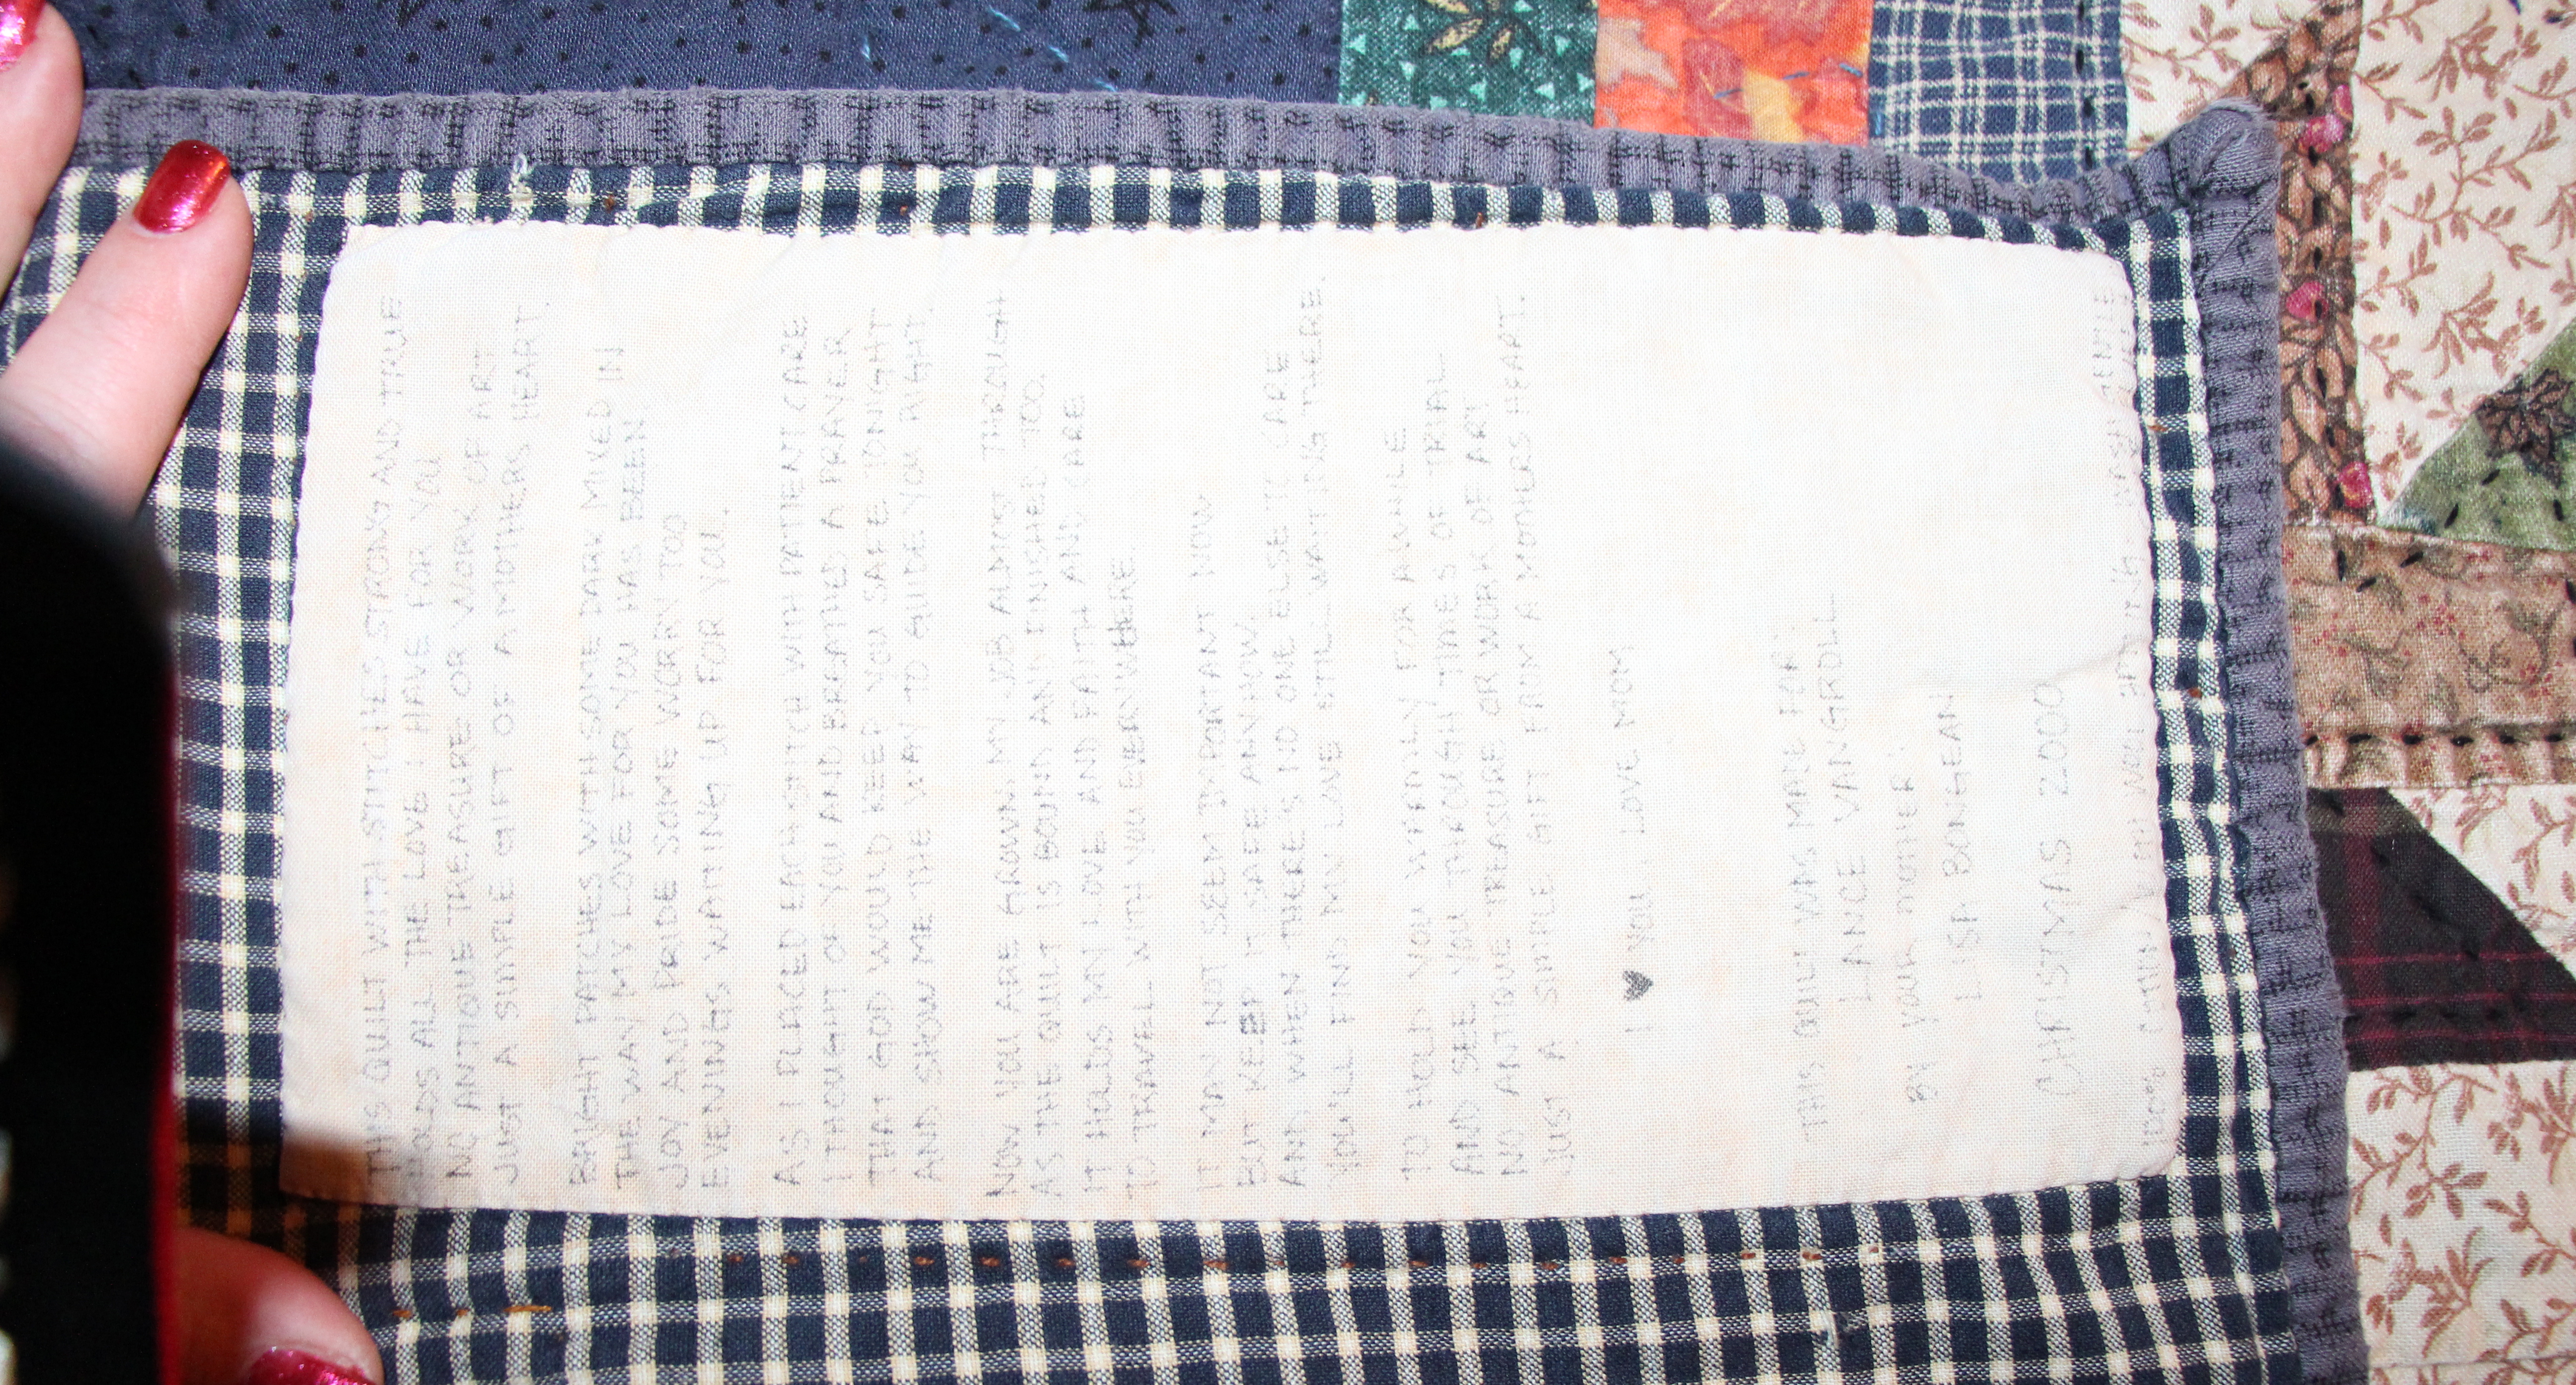 THIS QUILT WITH STITCHES STRONG AND TRUE
HOLDS ALL THE LOVE I HAVE FOR YOU
NO ANTIQUE TREASURE OR WORK OF ART
JUST A SIMPLE GIFT OF A MOTHERS HEART.
BRIGHT PATCHES WITH SOME DARK MIXED IN
THE WAY MY LOVE FOR YOU HAS BEEN
JOY AND PRIDE SOME WORRY TOO
EVENINGS WAITING UP FOR YOU.
AS I PLACED EACH STITCH WITH PATIENT CARE
I THOUGHT OF YOU AND BREATHED A PRAYER
THAT GOD WOULD KEEP YOU SAFE TONIGHT
AND SHOW ME THE WAY TO GUIDE YOU RIGHT.
NOW YOU ARE GROWN, MY JOB ALMOST THROUGH
AS THE QUILT IS BOUND AND FINISHED TOO.
IT HOLDS MY LOVE AND FAITH AND CARE
TO TRAVEL WITH YOU EVERYWHERE.
IT MAY NOT SEEM IMPORTANT NOW
BUT KEEP IT SAFE ANYHOW.
AND WHEN THERE IS NO ONE ELSE TO CARE
YOU'LL FIND MY LOVE STILL WAITING THERE.
TO HOLD YOU WARMLY FOR AWHILE
AND SEE YOU THROUGH TIMES OF TRIAL
NO ANTIQUE TREASURE OR WORK OF ART
JUST A SIMPLE GIFT FROM A MOTHERS HEART.
I ♥ YOU LOVE MOM
THIS QUILT WAS MADE FOR:
LANCE
BY YOUR MOTHER:
LISA
CHRISTMAS 2000